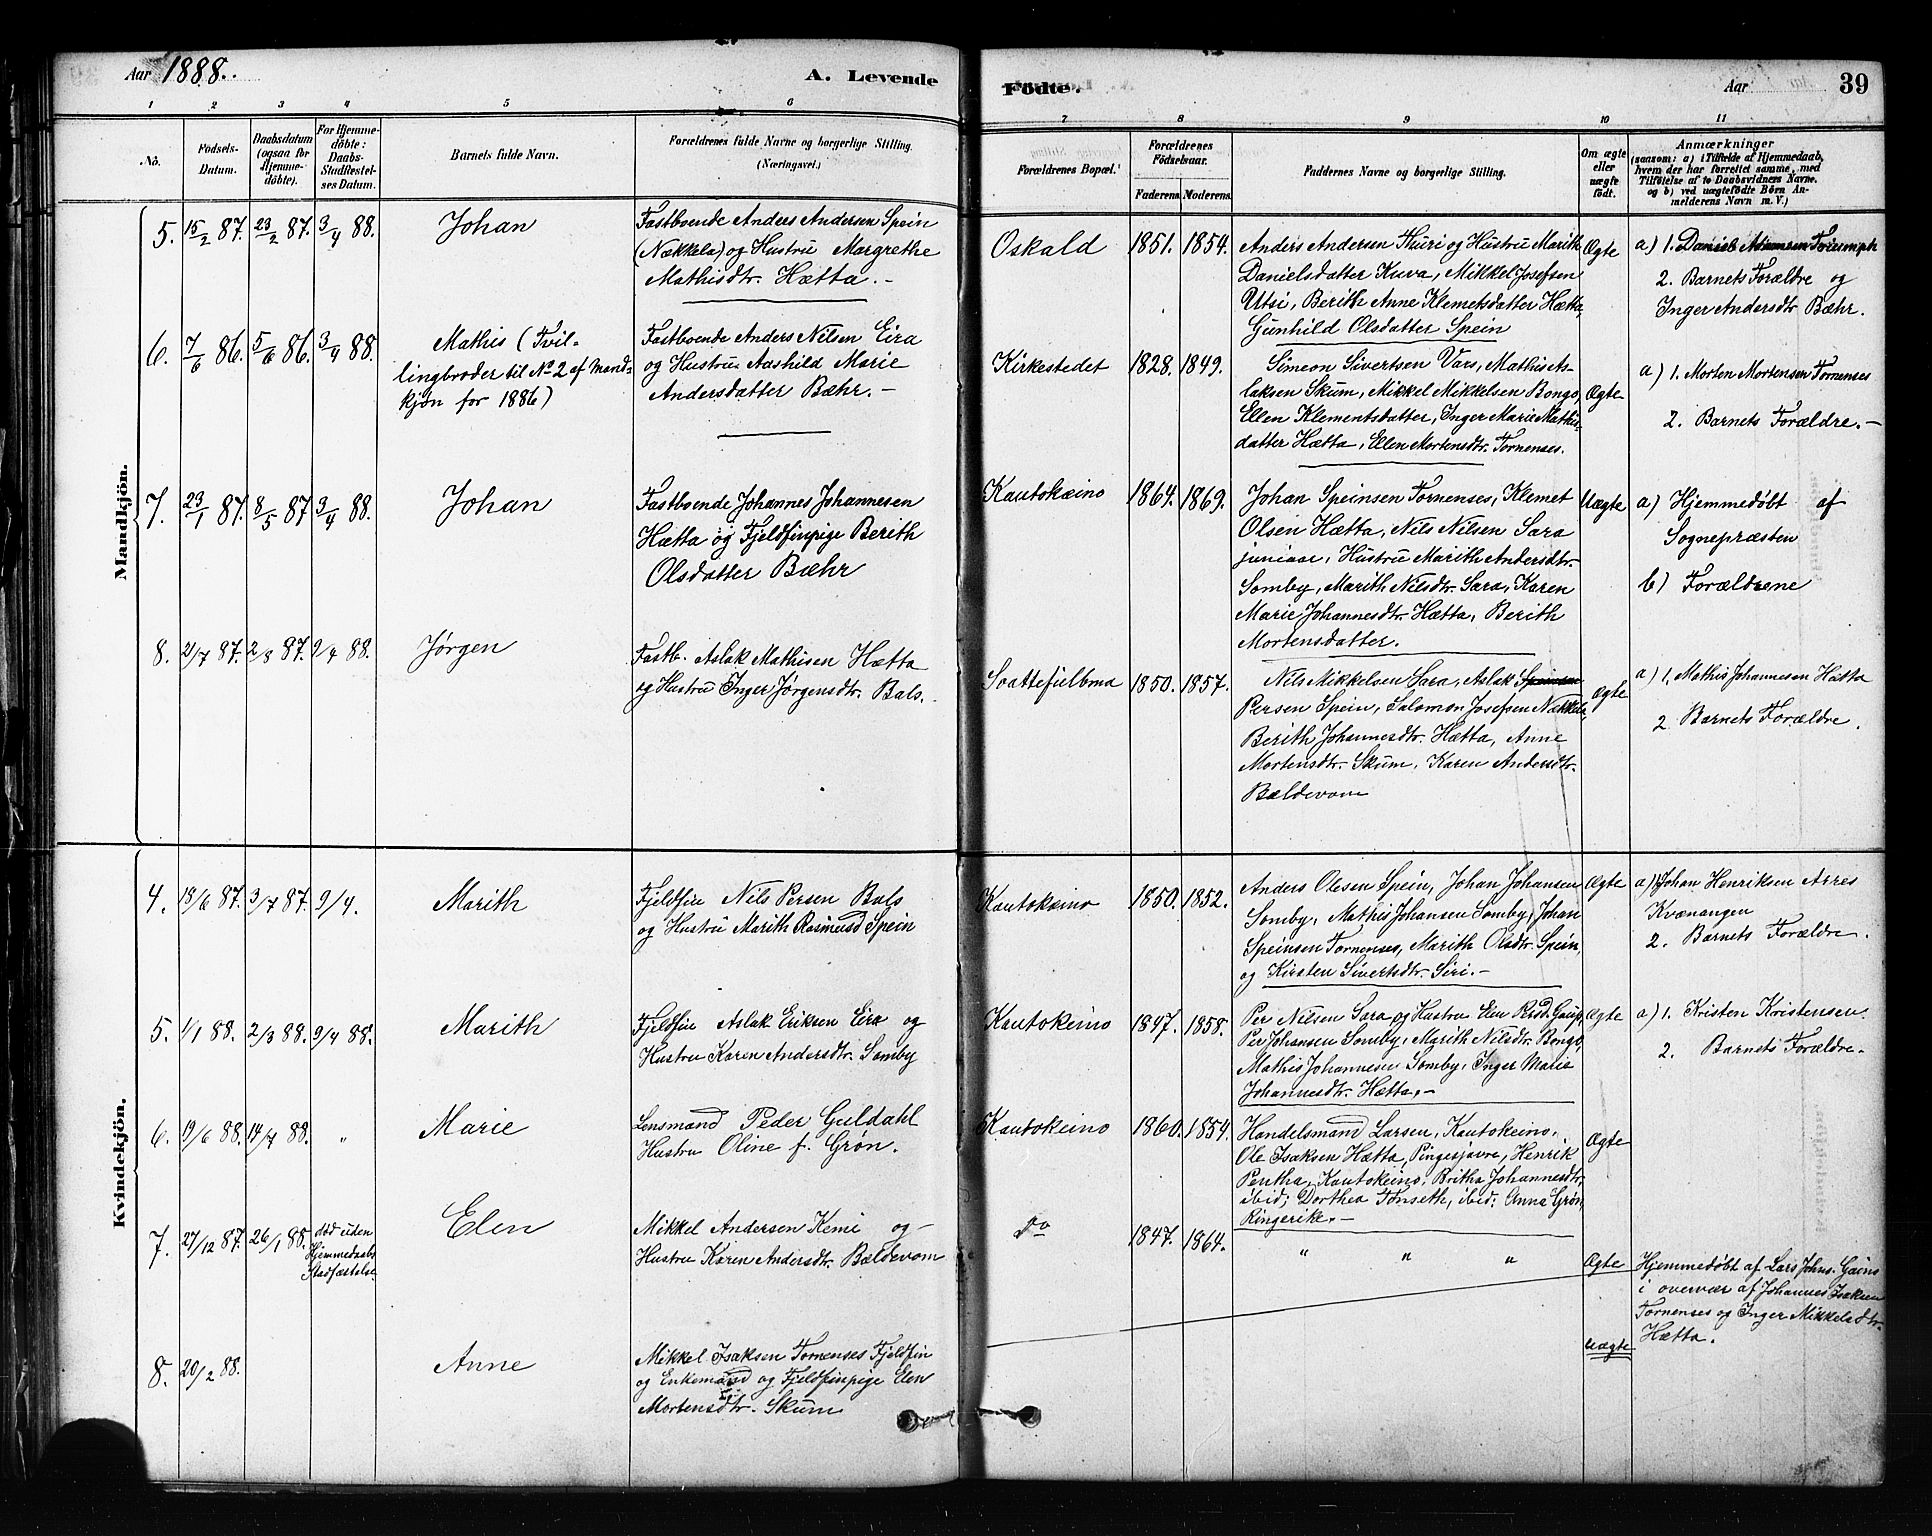 Aar 1888. A. Levende
1 2 3 4 5 6
No.
Födsels-
Datum.
Daabsdatum
(ogsaa for
Hjemme-
döbte).
For Hjemme-
döbte:
Daabs-
Stadfæstel-
ses Datum.
Barnets fulde Navn.
Forældrenes fulde Navne og borgerlige Stilling.
(Næringsvei.)
Mandkjön.
5. 15/2 87. 23/2 87. 3/4 88. Johan
Fastboende Anders Andersen Spein
(Nækkela) og Hustru Margrethe
Mathisdtr. Hætta. -
6. 7/6 86. 5/6 86. 3/4 88. Mathis (Tvil-
lingbroder til No 2 af Mand-
kjøn for 1886)
Fastboende Anders Nilsen Eira
og Hustru Aashild Marie
Andersdatter Bæhr. -
7. 23/1 87. 8/5 87 3/4 88. Johan
Fastboende Johannes Johannesen
Hætta og Fjeldfinpige Berith
Olsdatter Bæhr
8. 21/7 87. 2/8 87. 9/4 88. Jørgen
Fastb. Aslak Mathisen Hætta
og Hustru Inger Jørgensdtr. Bals.
Kvindekjön.
4. 18/6 87. 3/7 87. 9/4. Marith
Fjeldfin Nils Persen Bals
og Hustru Marith Rasmusd Spein
5. 1/1 88. 2/3 88. 9/4 88. Marith
Fjeldfin Aslak Eriksen Eira og
Hustru Karen Andersdtr. Somby
6. 19/6 88. 14/7 88. " Marie
Lensmand Peder Guldahl
Hustru Oline f. Grøn.
7. 27/12 87. 26/1 88. død uden
Hjemmedaabs
Stadfæstelse
Elen
Mikkel Andersen Kemi og -
Hustru Karen Andersdtr. Bældevom
8. 20/2 88. Anne
Mikkel Isaksen Tornenses Fjeldfin
og Enkemand og Fjeldfinpige Elen
Mortensdtr. Skum
Födte. Aar 39
7 8 9 10 11
Forældrenes Bopæl.
Forældrenes
Födselsaar.
Faderens. Moderens.
Faddernes Navne og borgerlige Stilling.
Om ægte
eller
uægte
födt.
Anmærkninger
(saasom: a) i Tilfælde af Hjemmedaab,
hvem der har forrettet samme, med
Tilföielse af to Daabsvidners Navne,
og b) ved uægtefödte Börn An-
melderens Navn m. V.)
Oskald 1851. 1854.
Anders Andersen Thuri og Hustru Marith
Danielsdatter Kuva, Mikkel Josefsen
Utsi, Berith Anne Klemetsdatter Hætta,
Gunhild Olsdatter Spein
Ægte
a) 1. Daniel Triumph
2. Barnets Forældre og
Inger Andersdtr Bæhr.
Kirkestedet 1828. 1849.
Simeon Sivertsen Vars, Mathis As-
laksen Skum, Mikkel Mikkelsen Bongo,
Ellen Klementsdatter, Inger Marie Mathis-
datter Hætta, Ellen Mortensdtr. Tornenses.
Ægte
a) 1. Morten Mortensen Tornenses
2. Barnets Forældre. -
Kautokæino 1864. 1869.
Johan Speinsen Tornenses, Klemet
Olsen Hætta, Nils Nilsen Sara
junior, Hustru Marith Andersdtr.
Somby, Marith Nilsdtr. Sara, Karen
Marie Johannesdtr. Hætta, Berith
Mortensdatter.
Uægte
a) Hjemmedøbt af
Sognepræsten
b) Forældrene
Soattefielbma 1850. 1857.
Nils Mikkelsen Sara, Aslak Speinsen
Persen Spein, Salomon Josefsen Nækkela,
Berith Johannesdtr. Hætta, Anne
Mortensdtr. Skum, Karen Andersdtr.
Bældevom
Ægte
a) 1. Mathis Johannesen Hætta
2 Barnets Forældre.
Kautokæino 1850. 1852.
Anders Olesen Spein, Johan Johansen
Somby, Mathis Johansen Somby, Johan
Speinsen Tornenses, Marith Olsdtr. Spein,
og Kirsten Sivertsdtr. Siri. -
Ægte
a) Johan Henriksen Arres
Kvænangen
2. Barnets Forældre.
Kautokeino 1847. 1858.
Per Nilsen Sara og Hustru Elen Rasd. Gaup,
Per Johansen Somby, Marith Nilsdtr. Bongo,
Mathis Johannesen Somby, Inger Marie
Johannesdtr. Hætta. -
Ægte
a) 1. Kristen Kristensen.
2. Barnets Forældre.
Kautokeino 1860. 1854.
Handelsmand Larsen, Kautokeino.
Ole Isaksen Hætta, Pingisjavre, Henrik
Pentha, Kautokeino, Britha Johannesdtr,
ibid; Dorthea Tønseth, ibid; Anna Grøn,
Ringerike. -
Ægte
Do 1847. 1864. " " "
Ægte
Hjemmedøbt af Lars Johns. Gains
i overvær af Johannes Isaksen
Tornenses og Inger Mikkelsdtr.
Hætta.
uægte